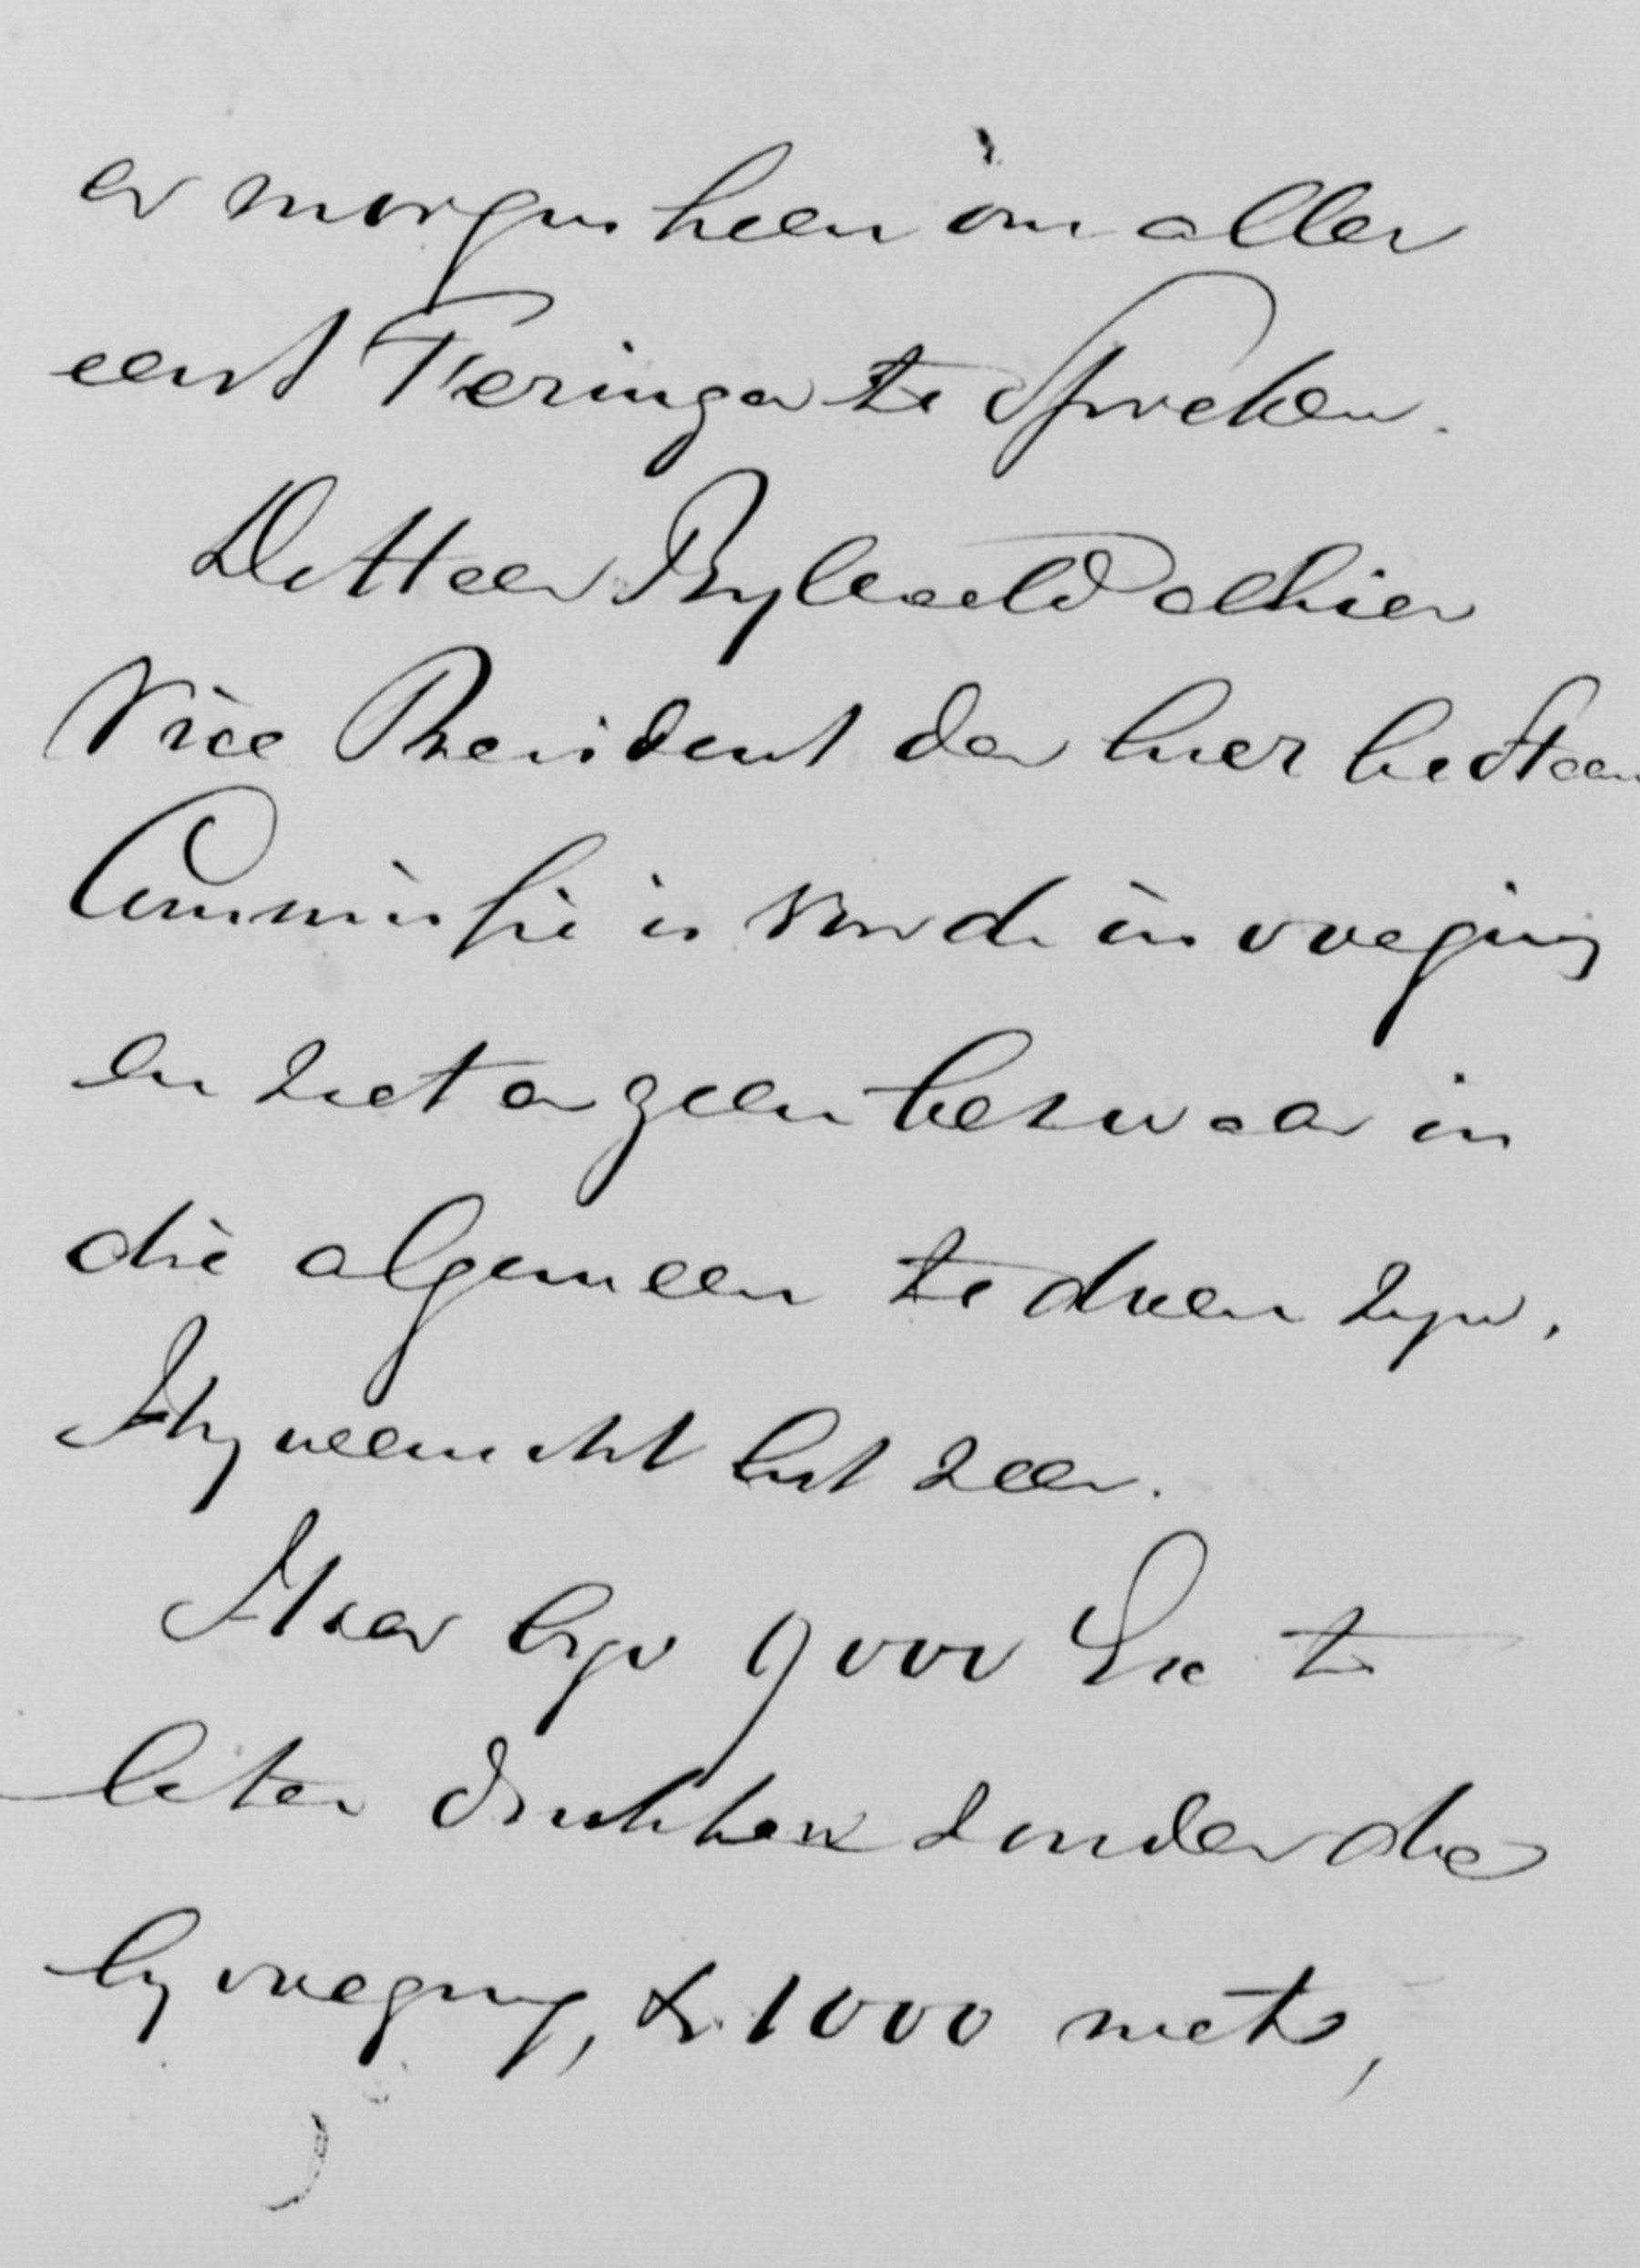 er morgen heen om aller
eerst Feringa te spreken.
De Heer Bylevelt alhier
Vice President der hier bestaan
Commissie is voor de invoeging
en ziet er geen bezwaar in
die algemeen te doen zyn.
Hy wenscht het zeer.
Maar byv 9000 Ex te
laten drukken zonder die
byvoeging, & 1000 met,